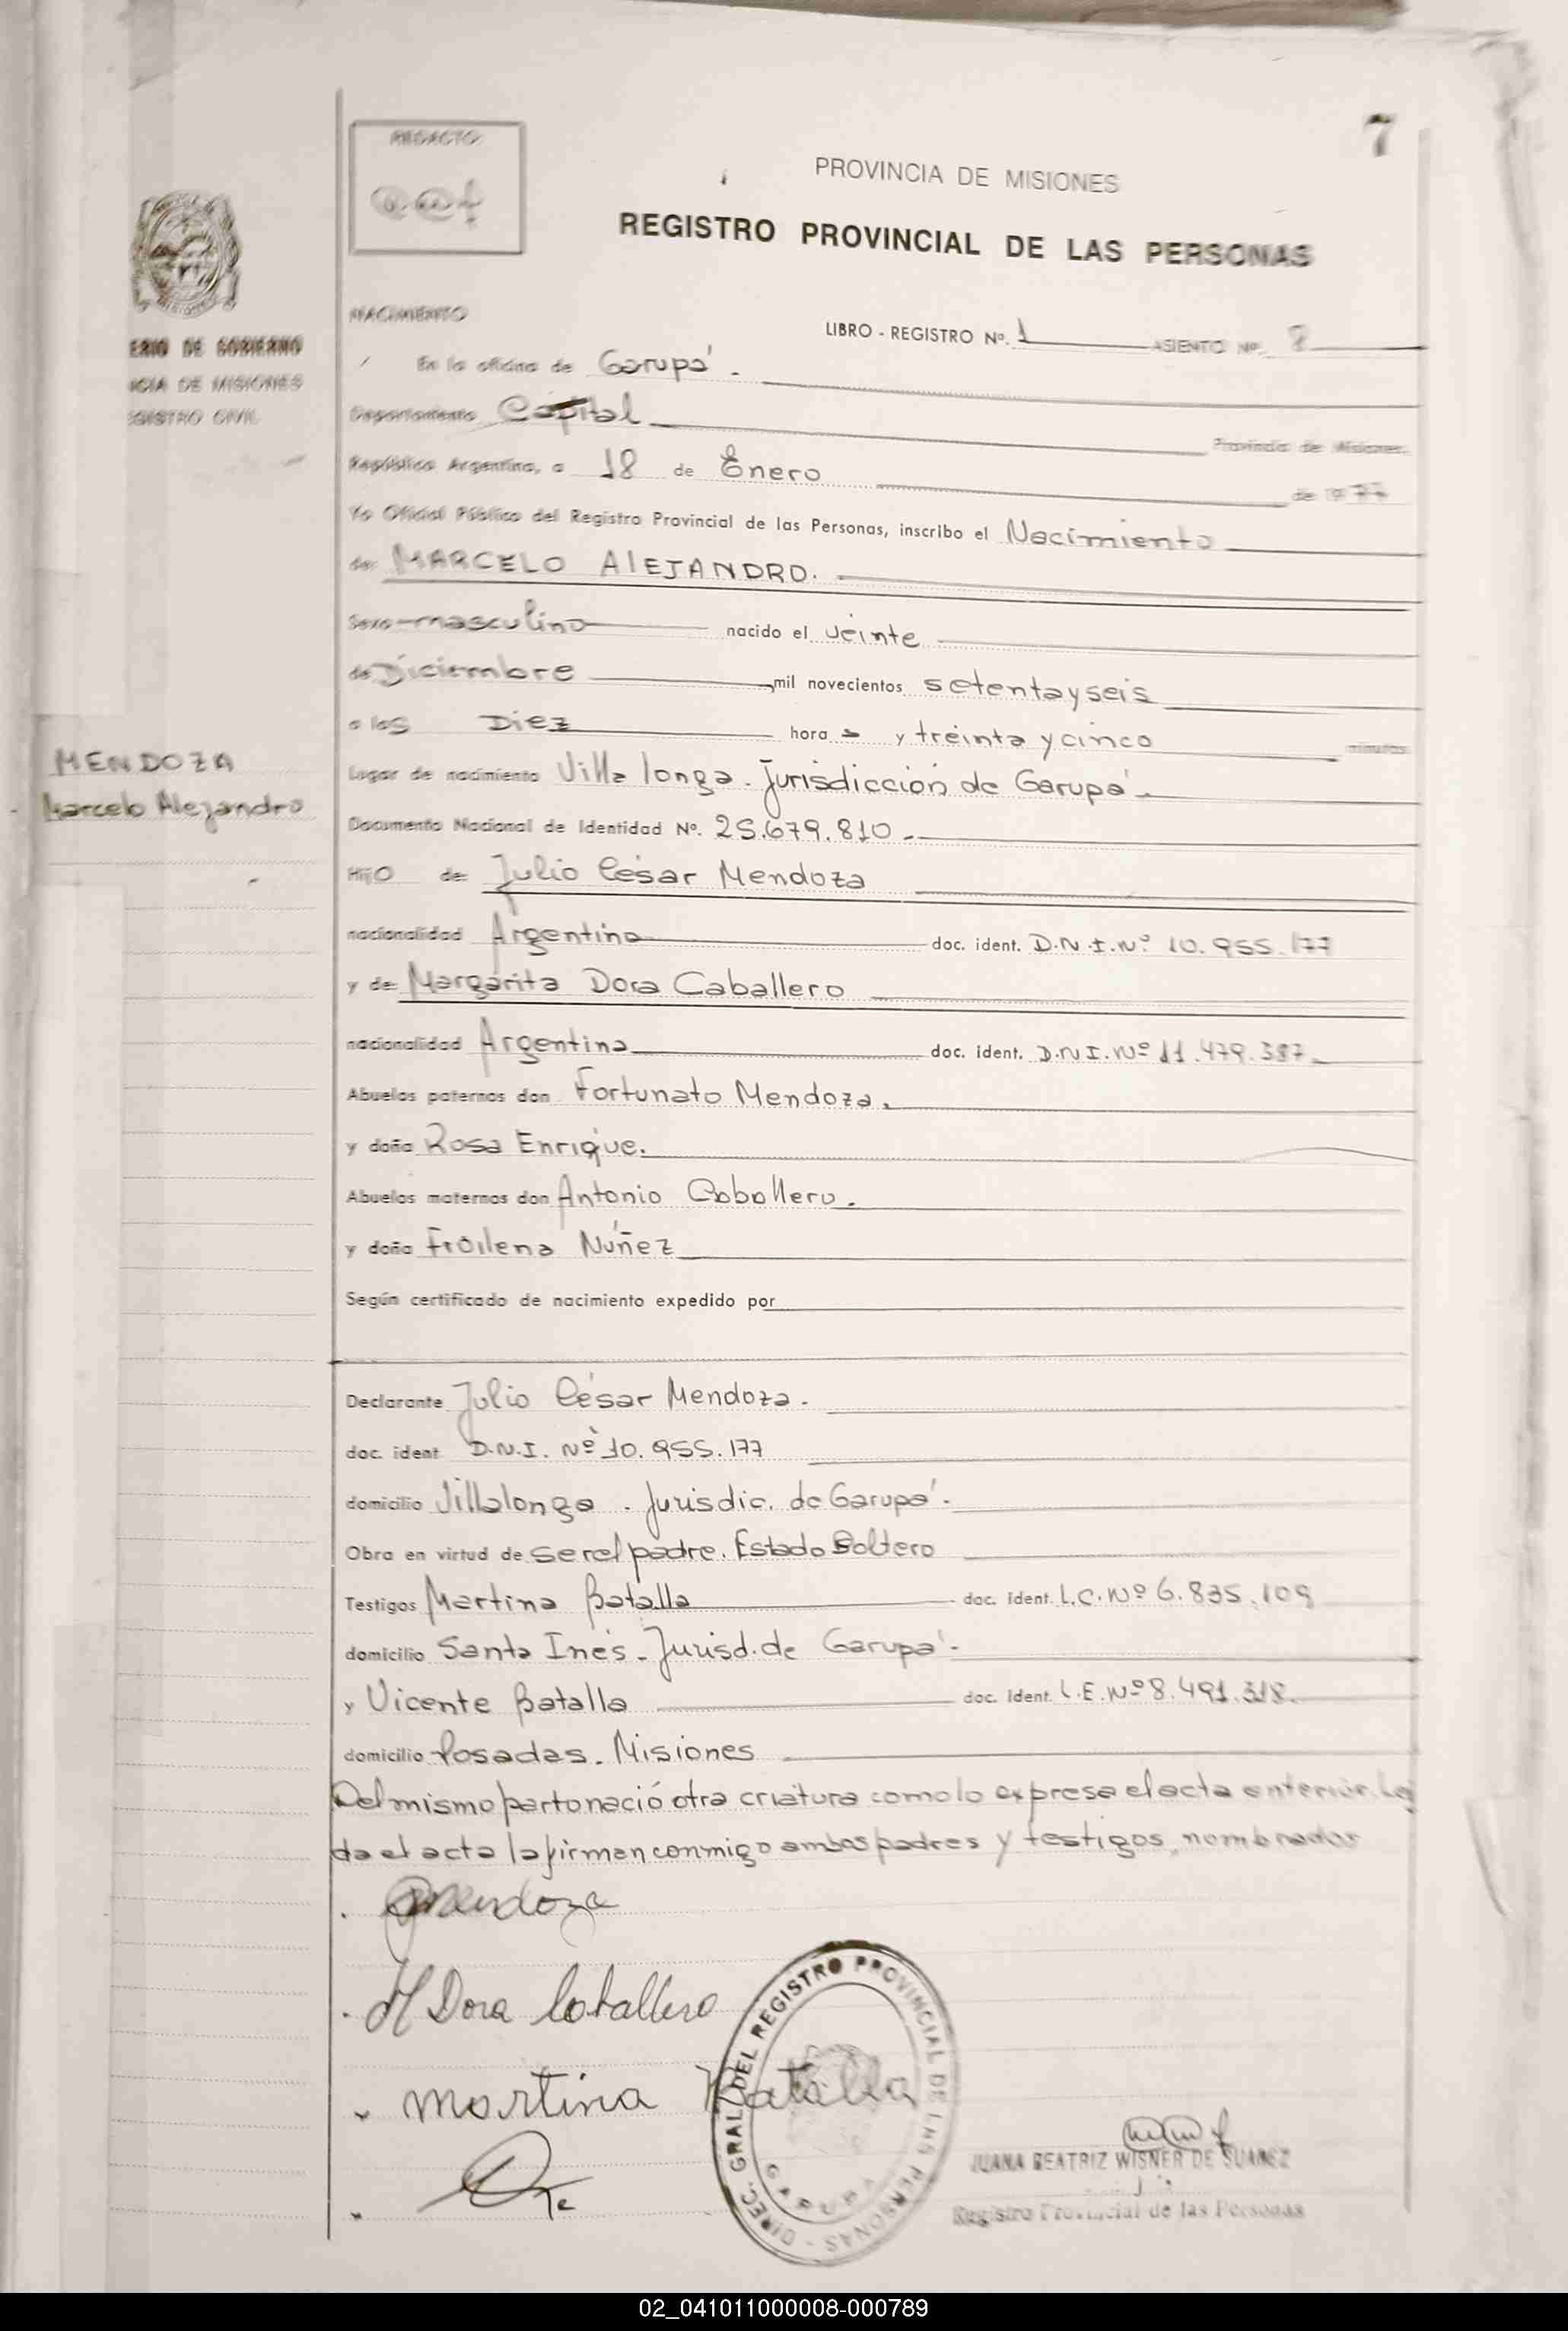 7
REDACTO
PROVINCIA DE MISIONES
REGISTRO PROVINCIAL DE LAS PERSONAS
ERIO DE GOBIERNO
NCIA DE MISIONES
GISTRO CIVIL
NACIMIENTO
LIBRO - REGISTRO Nº. 1 ASIENTO Nº. 8
En la oficina de Garupá.
Departamento Capital Provincia de Misiones.
República Argentina, a 18 de Enero de 1977
Yo Oficial Público del Registro Provincial de las Personas, inscribo el Nacimiento
de MARCELO AlEJANDRO.
Sexo masculino nacido el veinte
de Diciembre mil novecientos setenta y seis
a las Diez hora s y treinta y cinco minutos
MENDOZA
Marcelo Alejandro
Lugar de nacimiento Villa longa. Jurisdicción de Garupá.
Documento Nacional de Identidad Nº. 25.679.810.
Hijo de Julio César Mendoza
nacionalidad Argentina doc. ident. D.N.I.Nº 10.955.177
y de Margarita Dora Caballero
nacionalidad Argentina doc. ident. D.N.I.Nº 11.479.387
Abuelos paternos don Fortunato Mendoza.
y doña Rosa Enrique.
Abuelos maternos don Antonio Caballero.
y doña Froilena Núñez
Según certificado de nacimiento expedido por
Declarante Julio César Mendoza.
doc. ident D.N.I. Nº 10.955.177
domicilio Villalonga. Jurisdic. de Garupá.
Obra en virtud de ser el padre. Estado Soltero
Testigos Martina Batalla doc. ident. L.C.Nº 6.835.109
domicilio Santa Inés. Jurisd. de Garupá.
y Vicente Batalla doc. ident. L.E.Nº 8.491.318.
domicilio Posadas. Misiones
Del mismo parto nació otra criatura como lo expresa el acta anterior. Leí
da el acta la firman conmigo ambos padres y testigos nombrados
Mendoza
M Dora Caballero
martina Batalla
DIREC. GRAL. DEL REGISTRO PROVINCIAL DE LAS PERSONAS -
GARUPA
JUANA BEATRIZ WISNER DE SUAREZ
Registro Provincial de las Personas
02_041011000008-000789